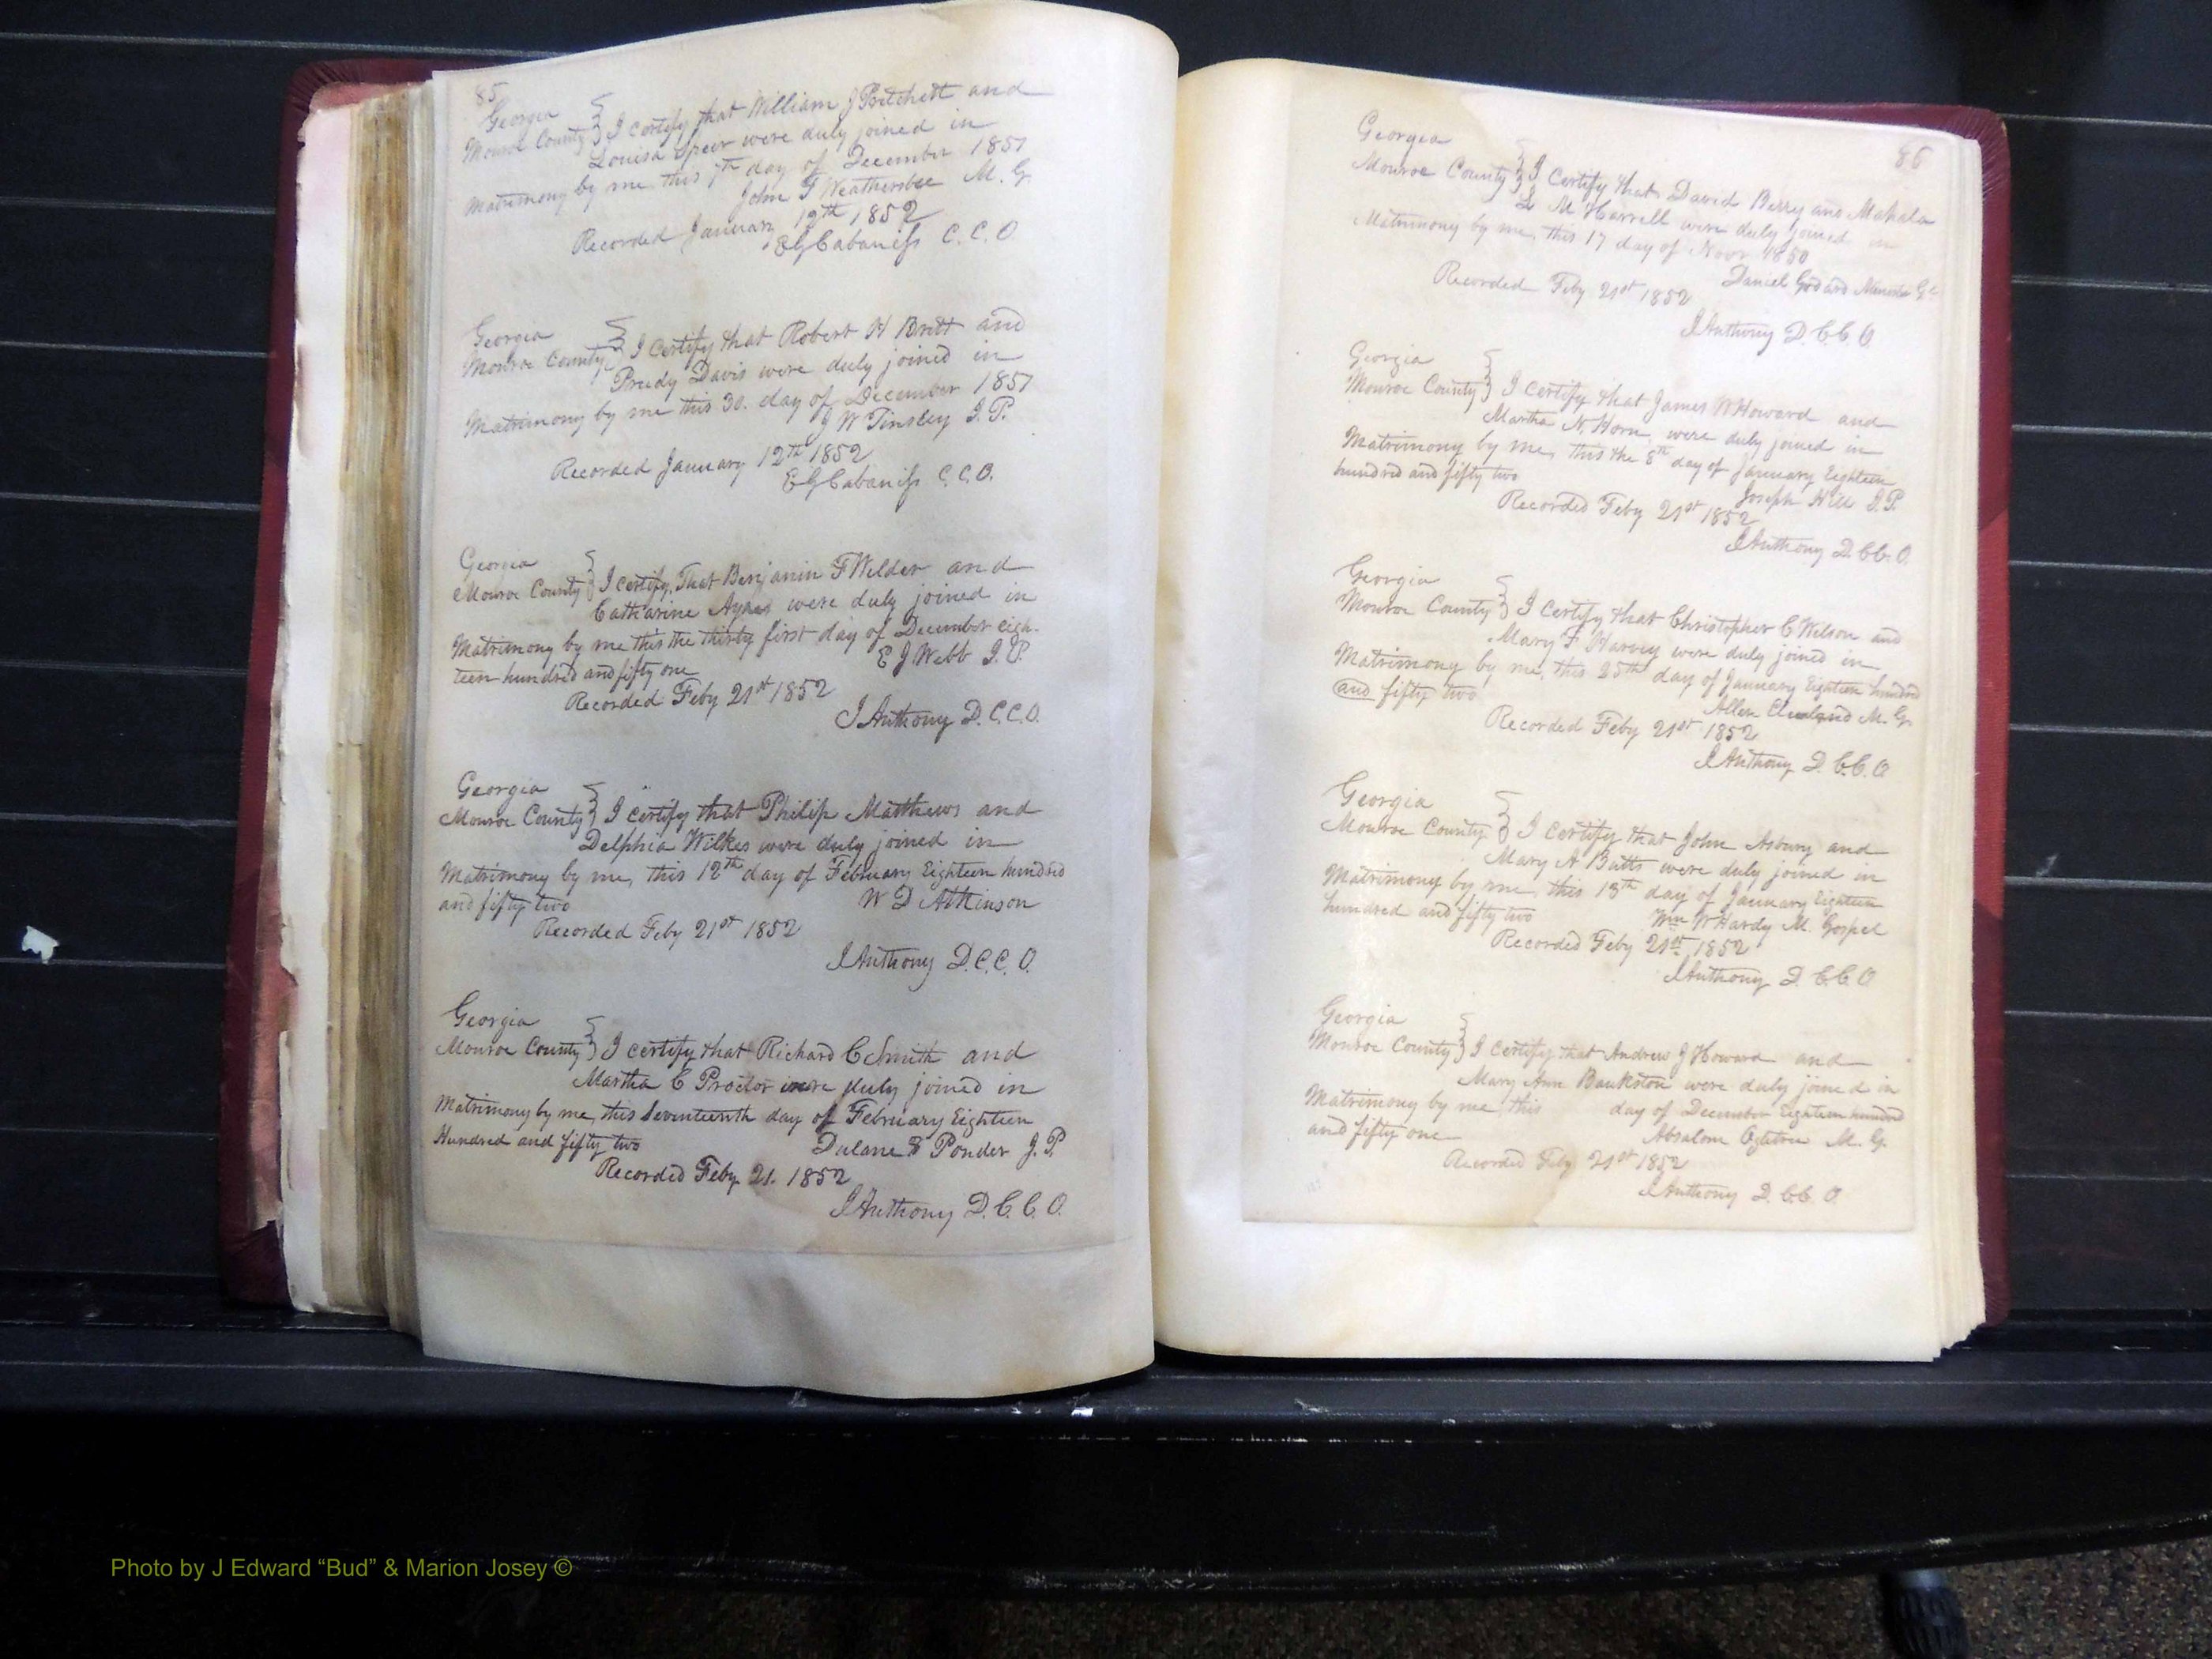 85
Georgia
Monroe County } I certify that William J Pritchett and
Louisa Speer were duly joined in
Matrimony by me this 7th day of December 1851
John F Weathersbee M. G.
Recorded January 12th 1852
E G Cabaniss C. C. O
Georgia
Monroe County } I certify that Robert H Britt and
Prudy Davis were duly joined in
Matrimony by me this 30. day of December 1851
J W Tinsley J. P.
Recorded January 12th 1852
E G Cabaniss C. C. O.
Georgia
Monroe County } I certify, That Benjamin F Welder and
Catharine were duly joined in
Matrimony by me this the thirty first day of December eigh-
teen hundred and fifty one E J Webb J. P.
Recorded Feby 21st 1852
J Anthony D. C. C. O.
Georgia
Monroe County } I certify that Philip Matthews and
Delphia Wilkes were duly joined in
Matrimony by me, this 12th day of February Eighteen hundred
and fifty two W D Atkinson
Recorded Feby 21st 1852
J Anthony D. C. C. O.
Georgia
Monroe County } I certify that Richard C Smith and
Martha C Proctor were duly joined in
Matrimony by me, this Seventeenth day of February Eighteen
Hundred and fifty two Ponder J. P.
Recorded Feby 21. 1852
J Anthony D. C. C. O.
86
Georgia
Monroe County } I Certify that David Berry and Mahala
L M Harrell were duly joined in
Matrimony by me, this 17 day of Novr 1850
Daniel
Recorded Feby 21st 1852
J Anthony D. C. C O.
Georgia
Monroe County } I certify that James W Howard and
Martha N. Horn, were duly joined in
Matrimony by me, this the 8th day of January Eighteen
hundred and fifty two
Joseph Hill J. P.
Recorded Feby 21st 1852
J Anthony D. C C. O.
Georgia
Monroe County } I certify that Christopher C Wilson and
Mary F Harvey were duly joined in
Matrimony by me, this 25th day of January Eighteen hundred
and fifty two
Allen Cleveland M. G.
Recorded Feby 21st 1852
J Anthony D. C. C. O
Georgia
Monroe County } I certify that John Asbury and
Mary A Butts were duly joined in
Matrimony by me, this 13th day of January Eighteen
hundred and fifty two Wm W Hardy M. Gospel
Recorded Feby 21st 1852
J Anthony D. C. C. O
Georgia
Monroe County } I certify that Andrew J Howard and
Mary Ann Bankston were duly joined in
Matrimony by me this day of December Eighteen hundred
and fifty one Absalom M. G.
Recorded Feby 21st 1852
J Anthony D. C C. O.
Photo by J Edward “Bud” & Marion Josey ©